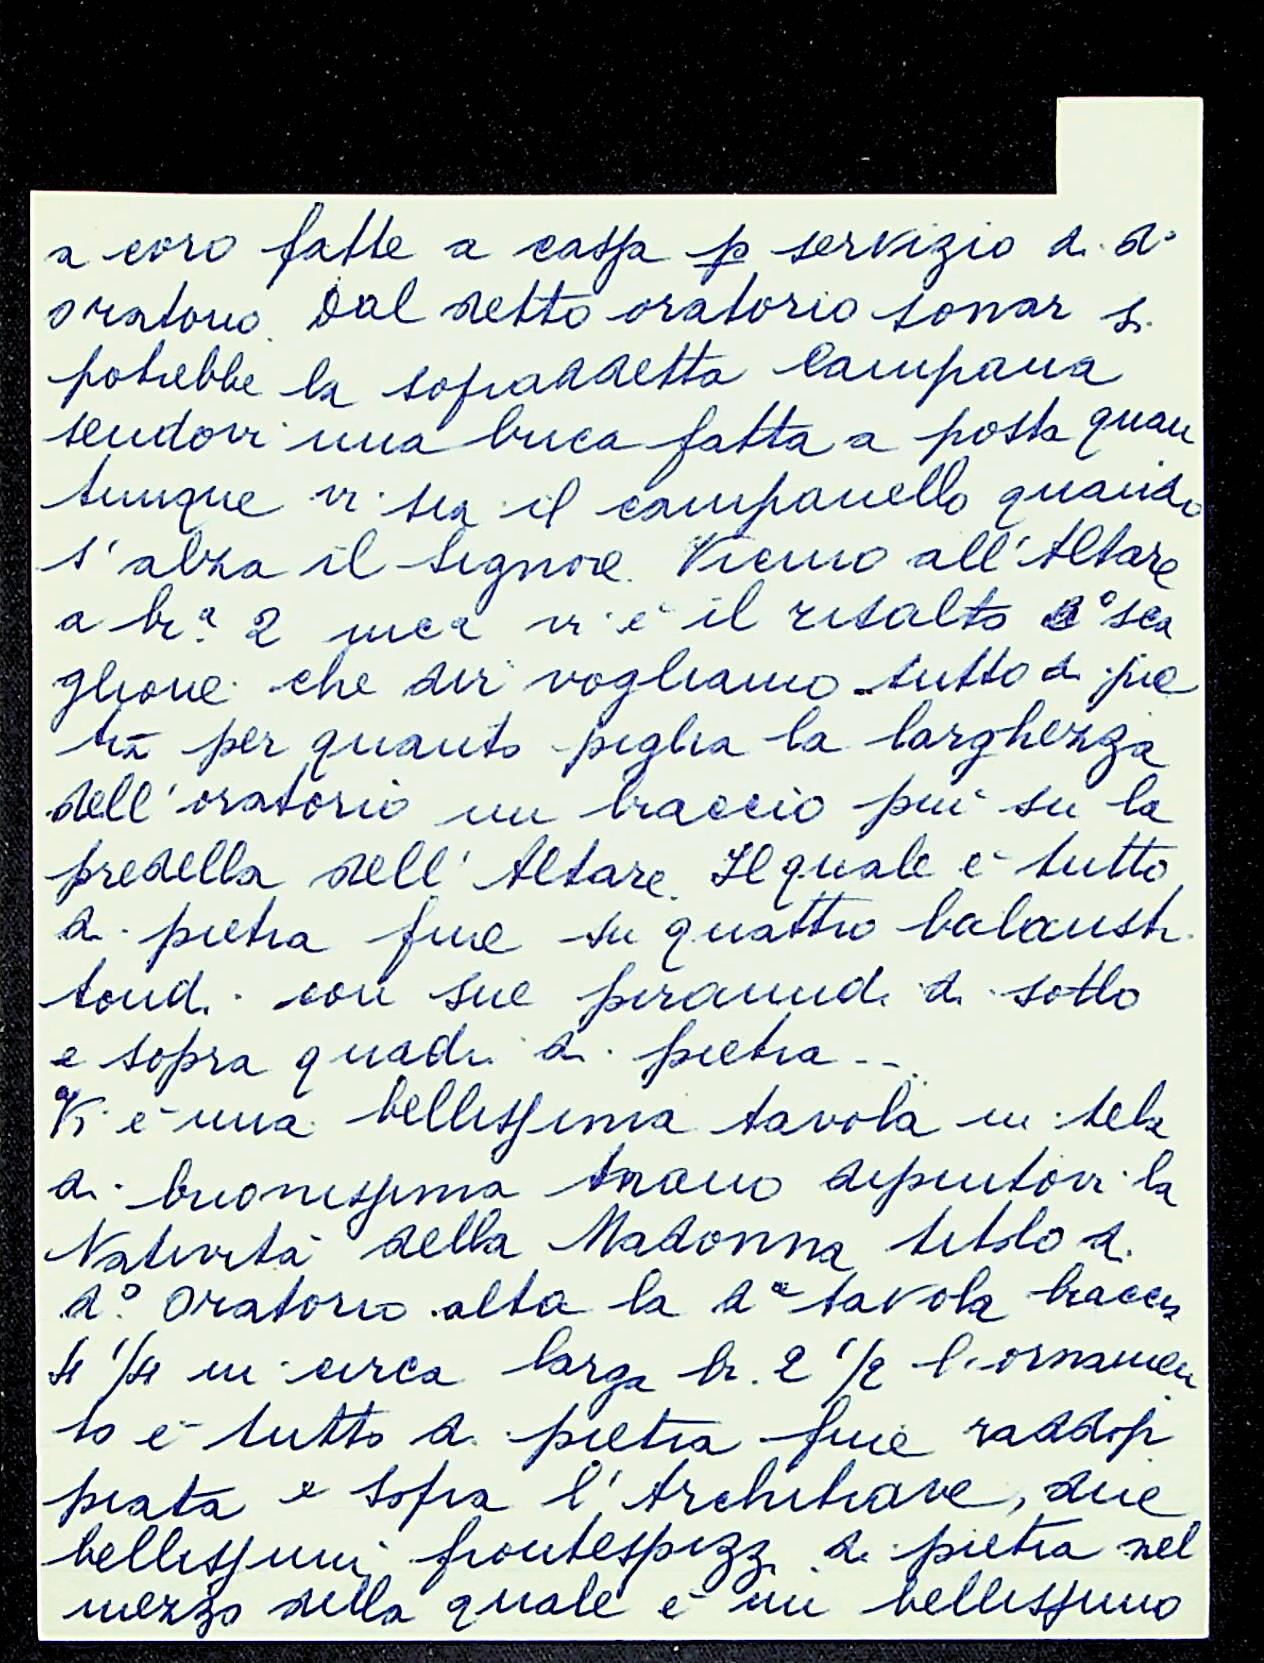 a coro fatte a cassa p servizio di d°
oratorio. Dal detto oratorio sonar si
potrebbe la sopraddetta Campana
sendovi una buca fatta a posta quan
tunque vi sia il campanello quando
s'alza il Signore. Vicino all'Altare
a br.ª 2 inca vi è il risalto o sca
glione che dir vogliamo tutto di pie
tra per quanto piglia la larghezza
dell'oratorio un braccio più su la
predella dell'Altare. Il quale è tutto
di pietra fine su quattro balaustri
tondi con sue piramidi di sotto
e sopra quadri di pietra --.
Vi è una bellissima tavola in tela
di buonissima mano dipintovi la
Natività della Madonna titolo di
d.° Oratorio alta la dª tavola braccia
4 1/4 in circa larga br. 2 1/2 l'ornamen
to è tutto di pietra fine raddop
piata e sopra l'Architrave, due
bellissimi frontespizi di pietra nel
mezzo della quale è un bellissimo